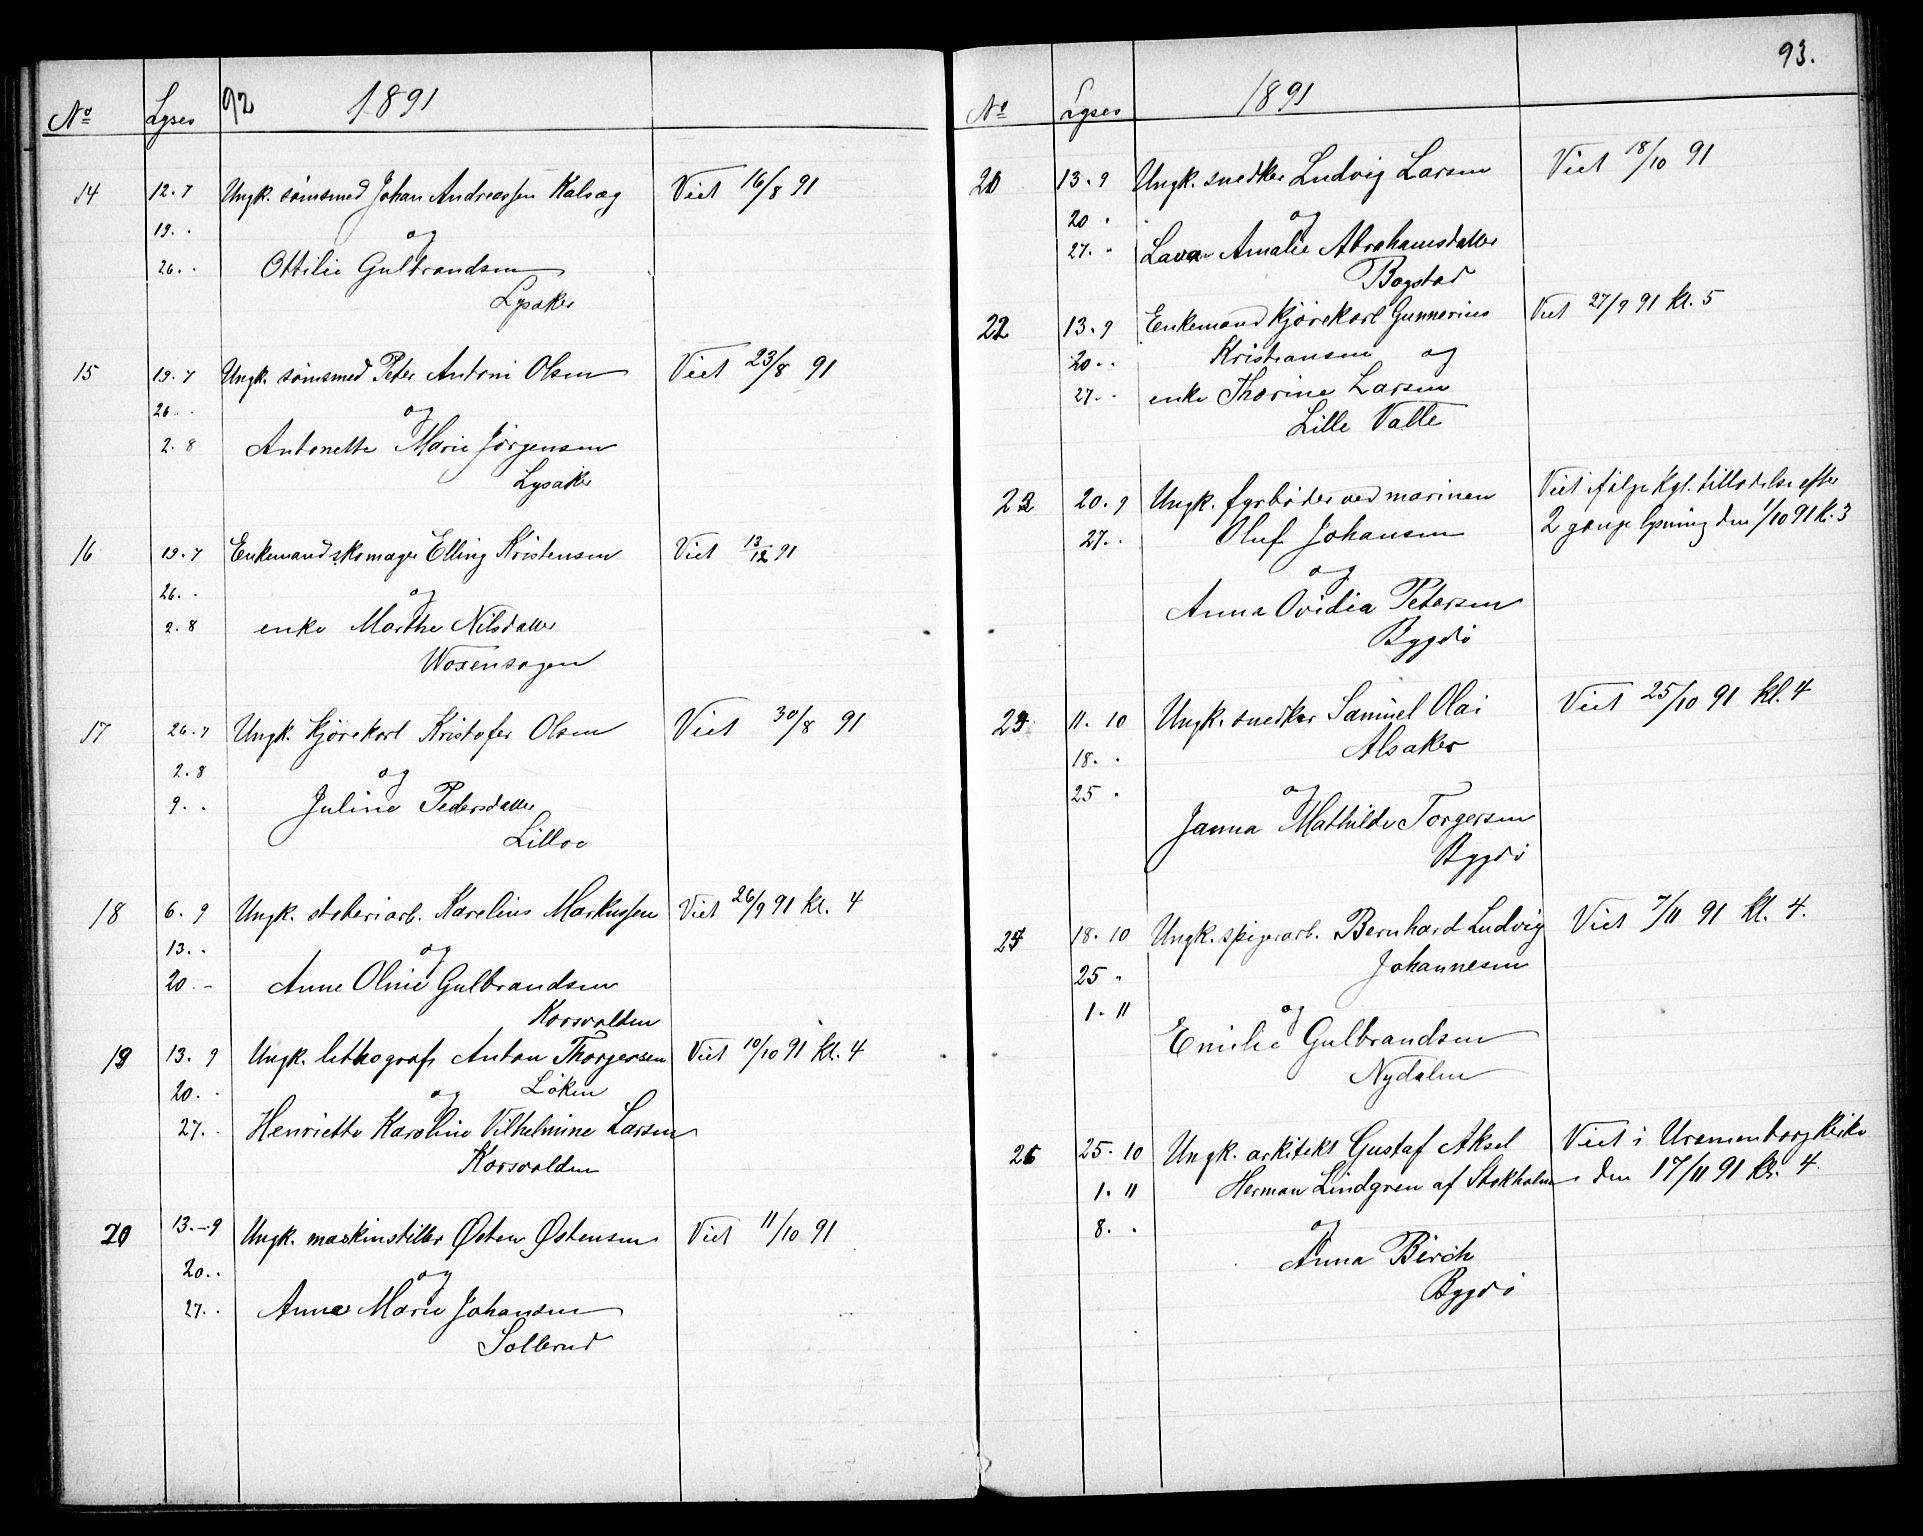 No Lyses 92 1891
14 12.7 Ungk. sømsmed Johan Andreassen Kalsæg Viet 16/8 91
19. . og
26. . Ottilie Gulbrandsen
Lysaker
15 19.7 Ungk. sømsmed Peter Antoni Olsen Viet 23/8 91
26. . og
2.8 Antonette Marie Jørgensen
Lysaker
16 19.7 Enkemand skomager Elling Kristensen Viet 13/12 91
26. . og
2.8 enke Marthe Nilsdatter
Woxensagen
17 26.7 Ungk. kjørekarl Kristofer Olsen Viet 30/8 91
2.8 og
9. . Juline Pedersdatter
Lilloe
18 6.9 Ungk. støberiarb. Karelius Markussen Viet 26/9 91 kl. 4
13. . og
20. - Anne Oline Gulbrandsen
Korsvolden
19 13.9 Ungk. lithograf Anton Thorgersen Viet 10/10 91 kl. 4
20. . og Løken
27. . Henriette Karoline Vilhelmine Larsen
Korsvolden
20 13.-9 Ungk. maskinstiller Østen Østensen Viet 11/10 91
20. . og
27. . Anne Marie Johansen
Sollerud
93.
No Lyses 1891
21 13.9 Ungk. snedker Ludvig Larsen Viet 18/10 91
20 . og
27. . Lava Amalie Abrahamsdatter
Bogstad
22 13.9 Enkemand kjørekarl Gunnerius Viet 27/9 91 kl. 5
20. . Kristiansen og
27. . enke Thorine Larsen
Lille Valle
23 20.9 Ungk. fyrbøder ved marinen Viet ifølge Kgl. tilladelse efter
27. . Oluf Johansen 2 gange lysning den 1/10 91 k. 3
og
Anna Ovidia Petersen
Bygdø
24 11.10 Ungk. snedker Samuel Olai Viet 25/10 91 kl. 4
18. . Alsaker
25 . og
Janna Mathilde Torgersen
Bygdø
25 18.10 Ungk. spigerarb. Bernhard Ludvig Viet 7/11 91 kl. 4.
25 . Johannesen
1.11 og
Emilie Gulbrandsen
Nydalen
26 25.10 Ungk. arkitekt Gustaf Aksel Viet i Uranienborg Kirke
1.11 Herman Lindgren af Stokholm den 17/11 91 kl. 4.
8. . og
Anna Birch
Bygdø